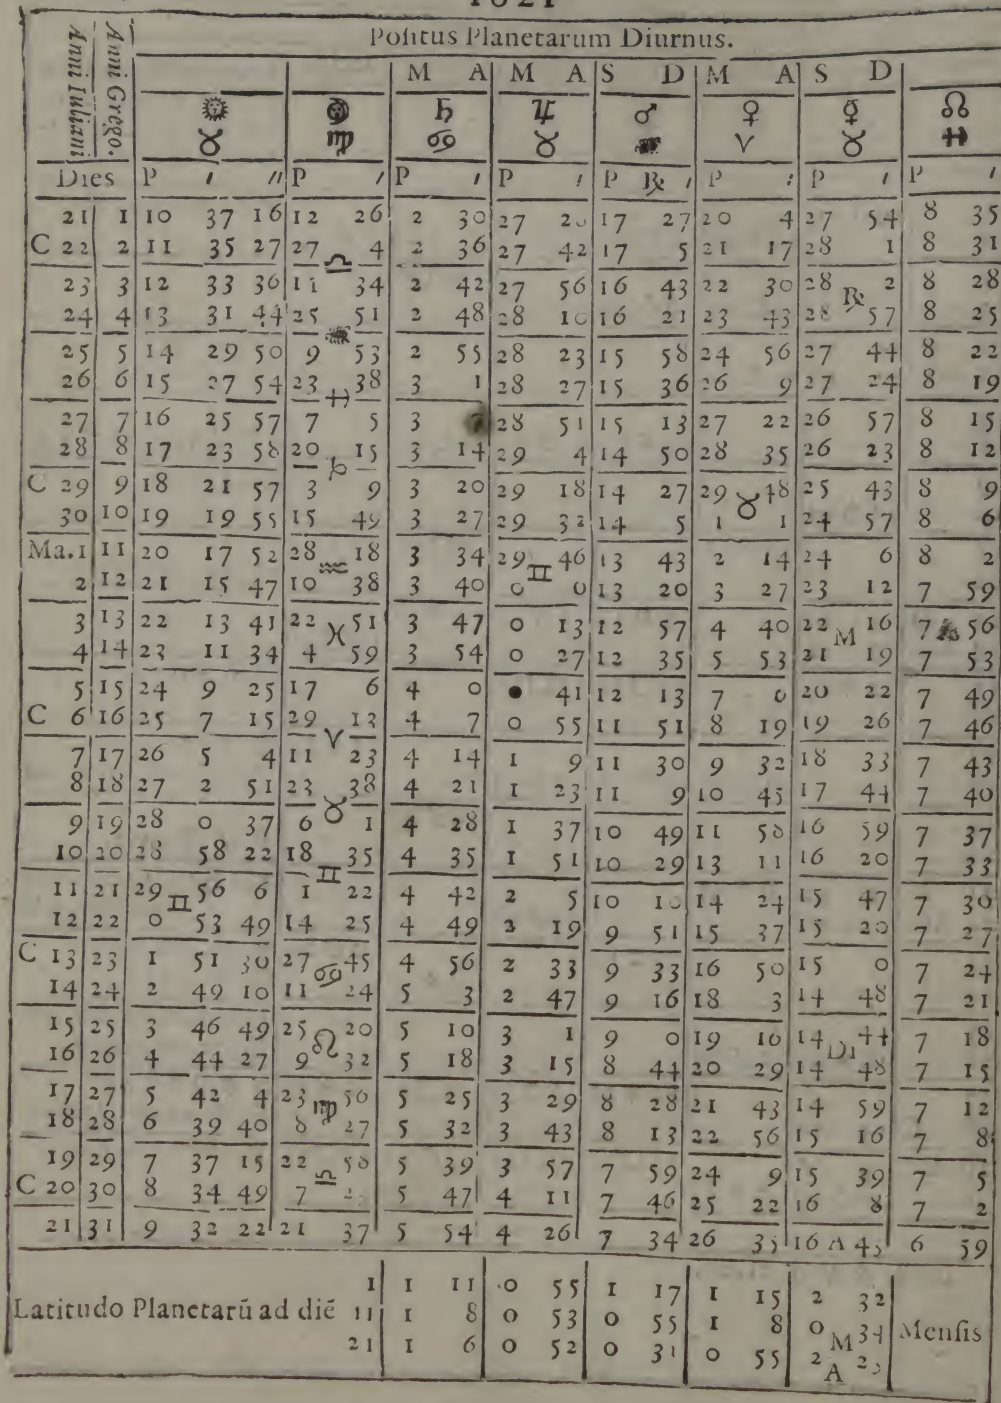 1621
Positus Planetarum Diurnus.
Anni Iuliani Anni Grego.
M A M A S D M A S D
☉ ☽ ♄ ♃ ♂ ♀ ☿ ☊
♉ ♍ ♋ ♉ ♈ ♉ ♓
Dies P ′ ″ P ′ P ′ P ′ P ℞ ′ P ′ P ′ P ′
21 1 10 37 16 12 26 2 30 27 17 27 20 4 27 54 8 35
C 22 2 11 35 27 27 ♎ 4 2 36 27 42 17 5 21 17 28 1 8 31
23 3 12 33 36 11 34 2 42 27 56 16 43 22 30 28 ℞ 2 8 28
24 4 13 31 44 25 51 2 48 28 10 16 21 23 43 28 57 8 25
25 5 14 29 50 9 53 2 55 28 23 15 58 24 56 27 44 8 22
26 6 15 27 54 23 38 3 1 28 27 15 36 26 9 27 24 8 19
27 7 16 25 57 7 5 3 7 28 51 15 13 27 22 26 57 8 15
28 8 17 23 58 20 ♑ 15 3 14 29 4 14 50 28 35 26 23 8 12
C 29 9 18 21 57 3 9 3 20 29 18 14 27 29 ♉ 48 25 43 8 9
30 10 19 19 55 15 49 3 27 29 32 14 5 1 1 24 57 8 6
Ma. 1 11 20 17 52 28 ♒ 18 3 34 29 ♊ 46 13 43 2 14 24 6 8 2
2 12 21 15 47 10 38 3 40 0 0 13 20 3 27 23 12 7 59
3 13 22 13 41 22 ♓ 51 3 47 0 13 12 57 4 40 22 M 16 7 56
4 14 23 11 34 4 59 3 54 0 27 12 35 5 53 21 19 7 53
5 15 24 9 25 17 6 4 0 41 12 13 7 6 20 22 7 49
C 6 16 25 7 15 29 13 4 7 0 55 11 51 8 19 19 26 7 46
7 17 26 5 4 11 ♈ 23 4 14 1 9 11 30 9 32 18 33 7 43
8 18 27 2 51 23 38 4 21 1 23 11 9 10 45 17 44 7 40
9 19 28 0 37 6 ♉ 1 4 28 1 37 10 49 11 58 16 59 7 37
10 20 28 58 22 18 35 4 35 1 51 10 29 13 11 16 20 7 33
11 21 29 ♊ 56 6 1 ♊ 22 4 42 2 5 10 10 14 24 15 47 7 30
12 22 0 53 49 14 25 4 49 2 19 9 51 15 37 15 20 7 27
C 13 23 1 51 30 27 ♋ 45 4 56 2 33 9 33 16 50 15 0 7 24
14 24 2 49 10 11 24 5 3 2 47 9 16 18 3 14 48 7 21
15 25 3 46 49 25 ♌ 20 5 10 3 1 9 0 19 16 14 Di 44 7 18
16 26 4 44 27 9 32 5 18 3 15 8 44 20 29 14 48 7 15
17 27 5 42 4 23 ♍ 56 5 25 3 29 8 28 21 43 14 59 7 12
18 28 6 39 40 8 27 5 32 3 43 8 13 22 56 15 16 7 8
19 29 7 37 15 22 ♎ 58 5 39 3 57 7 59 24 9 15 39 7 5
C 20 30 8 34 49 7 5 47 4 11 7 46 25 22 16 8 7 2
21 31 9 32 22 21 37 5 54 4 26 7 34 26 35 16 A 6 59
1 1 11 0 55 1 17 1 15 2 32
Latitudo Planetarũ ad diẽ 11 1 8 0 53 0 55 1 8 0 M 34 Mensis
21 1 6 0 52 0 31 0 55 2 A